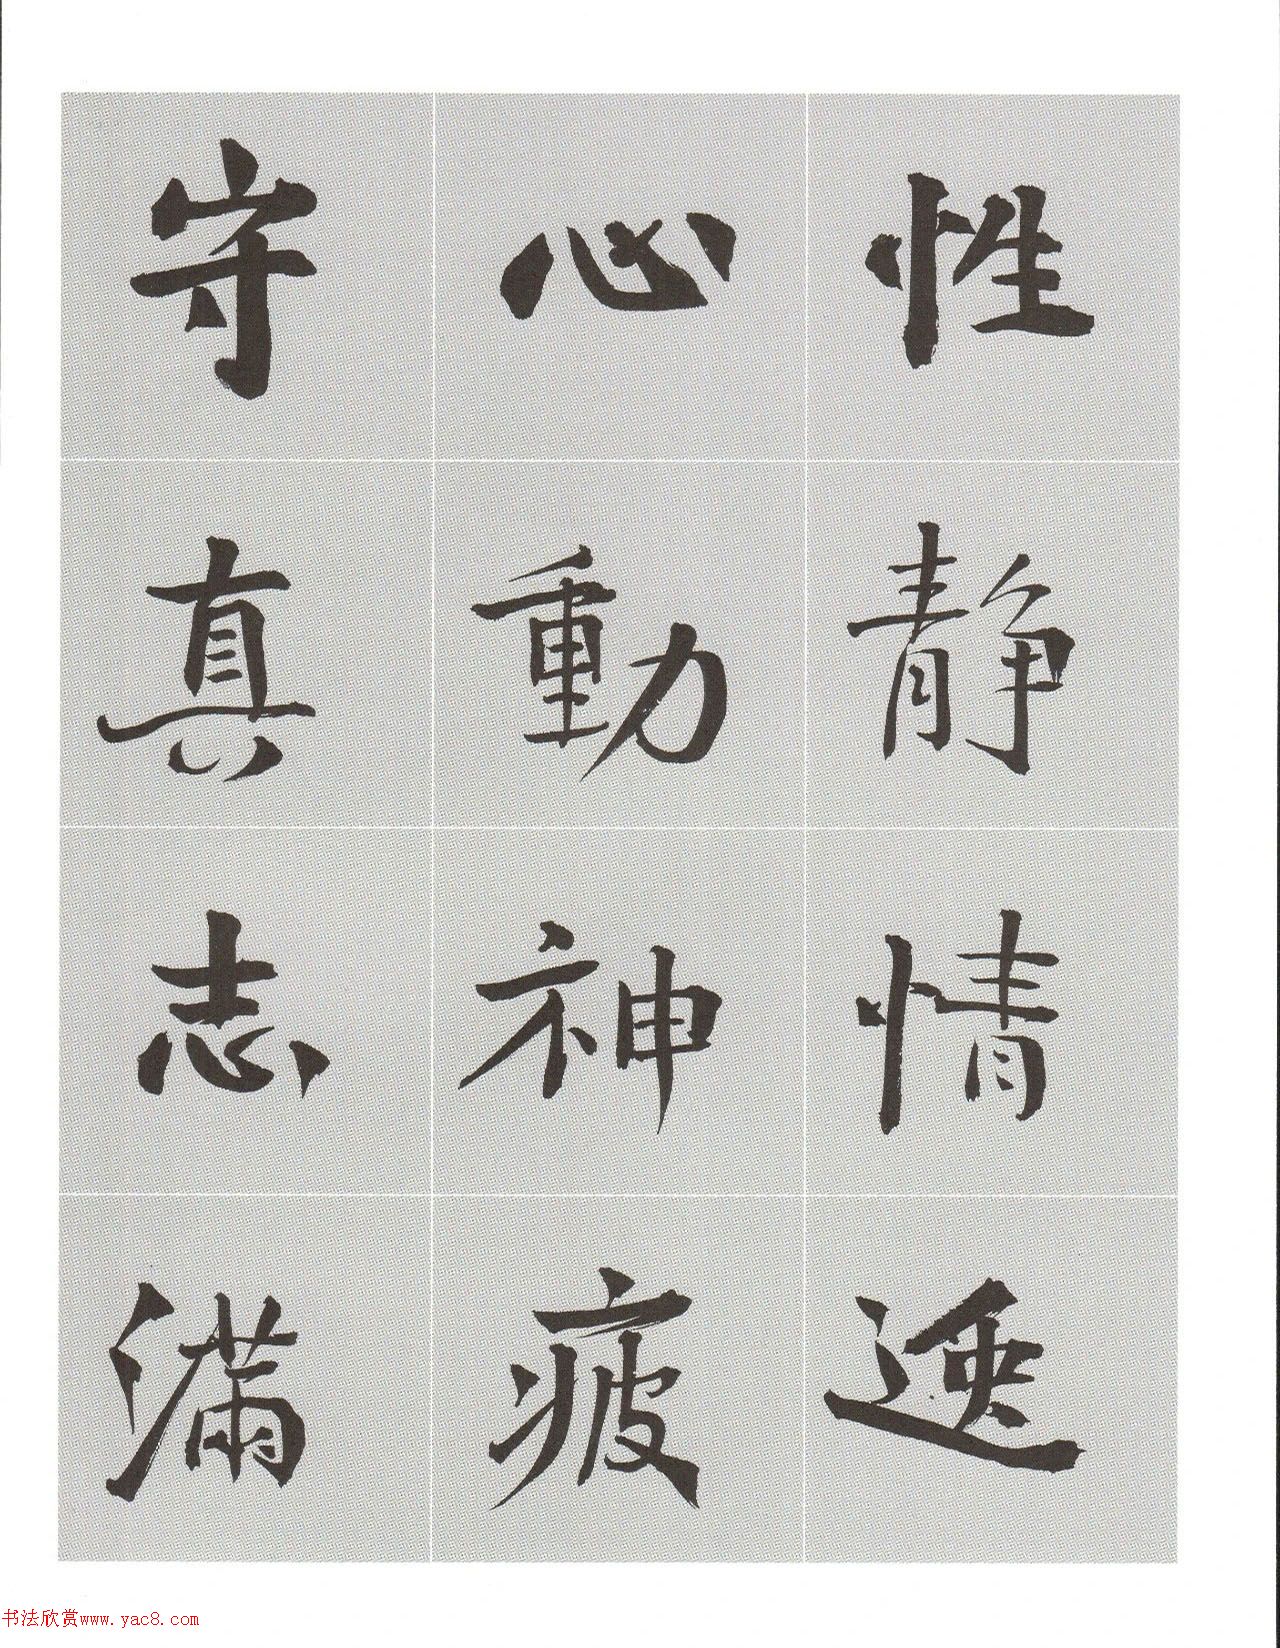 性静情逸
心動神疲
守真志滿
书法欣赏www.yac8.com